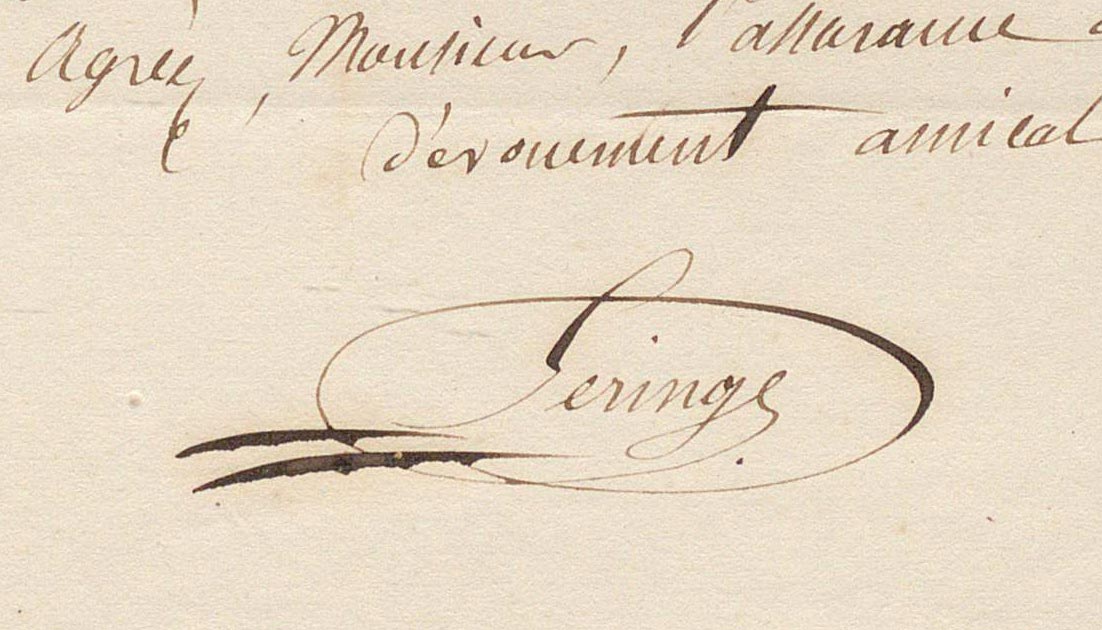 Agréez, Monsieur, l'assurance
dévouement amical
Seringe